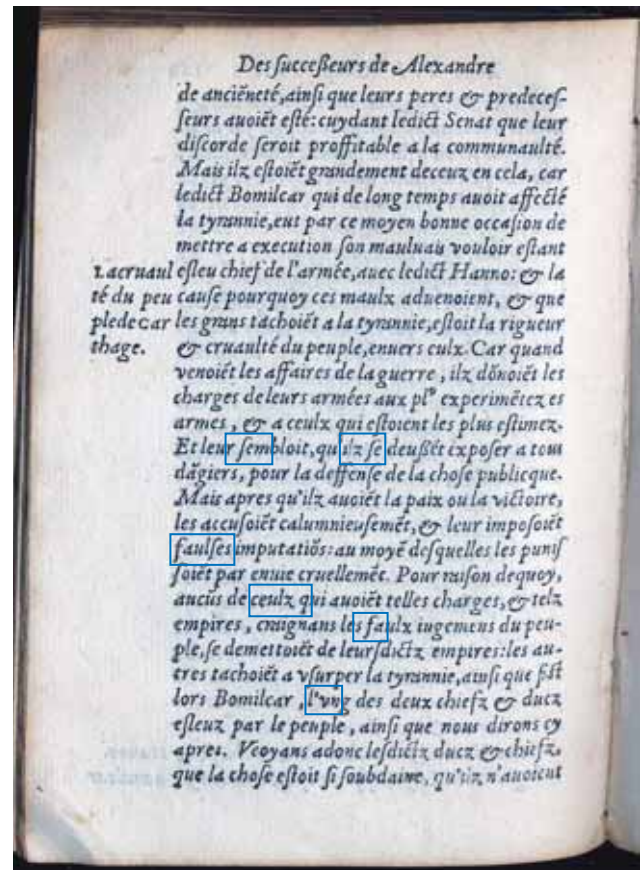 Des ſucceſſeurs de Alexandre
de anciẽneté, ainſi que leurs peres & predeceſ-
ſeurs auoiẽt eſté: cuydant ledict Senat que leur
diſcorde ſeroit proffitable a la communaulté.
Mais ilz eſtoiẽt grandement deceuz en cela, car
ledict Bomilcar qui de long temps auoit affecté
la tyrannie, eut par ce moyen bonne occaſion de
mettre a execution ſon mauluais vouloir eſtant
eſleu chief de l'armée, auec ledict Hanno: & la
cauſe pourquoy ces maulx aduenoient, & que
les grans tachoiẽt a la tyrannie, eſtoit la rigueur
& cruaulté du peuple, enuers eulx. Car quand
venoiẽt les affaires de la guerre, ilz dõnoiẽt les
charges de leurs armées aux plꝰ experimẽtez es
armes, & a ceulx qui eſtoient les plus eſtimez.
Et leur ſembloit, qu'ilz ſe deuſſẽt expoſer a tous
dãgiers, pour la deffenſe de la choſe publicque.
Mais apres qu'ilz auoiẽt la paix ou la victoire,
les accuſoiẽt calumnieuſemẽt, & leur impoſoiẽt
faulſes imputatiõs: au moyẽ deſquelles les puniſ
ſoiẽt par enuie cruellemẽt. Pour raiſon dequoy,
aucũs de ceulx qui auoiẽt telles charges, & telz
empires, craignans les faulx iugemens du peu-
ple, ſe demettoiẽt de leurſdictz empires: les au-
tres tachoiẽt a vſurper la tyrannie, ainſi que fiſt
lors Bomilcar, l'vng des deux chiefz & ducz
eſleuz par le peuple, ainſi que nous dirons cy
apres. Veoyans adonc leſdictz ducz & chiefz,
que la choſe eſtoit ſi ſoubdaine, qu'ilz n'auoient
La cruaul
té du peu
ple de Car
thage.